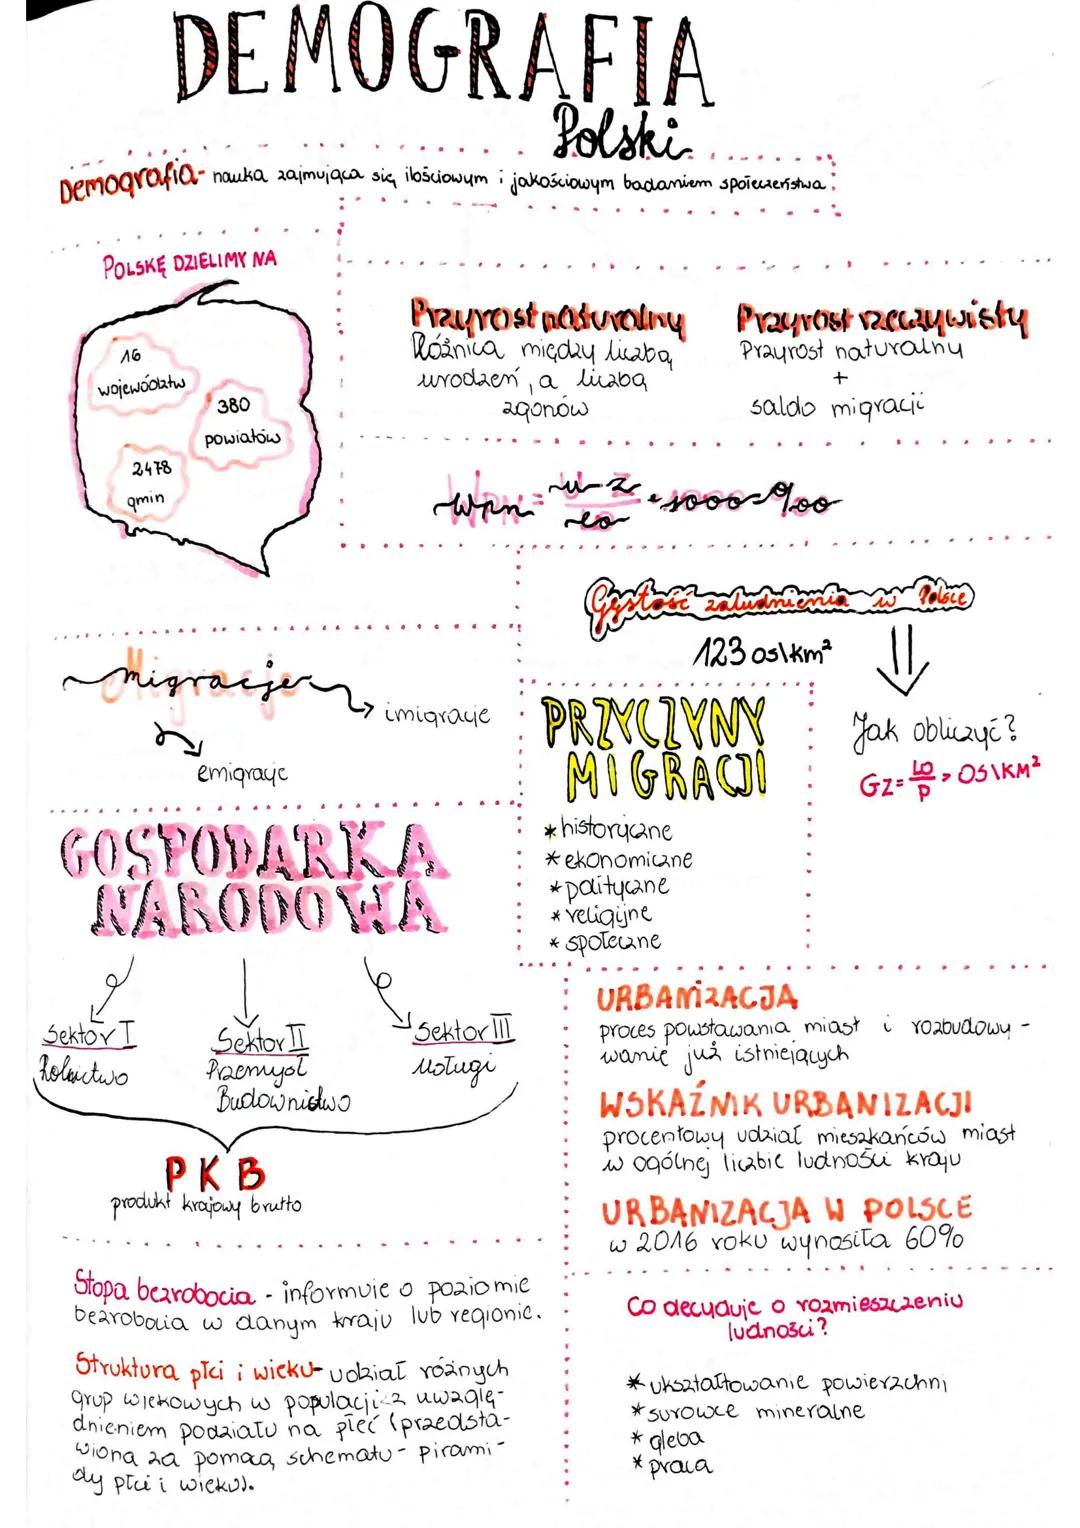 DEMOGRAFIA
Polski
Demografia- nauka zajmująca się ilościowym i jakościowym badaniem społeczeństwa
POLSKĘ DZIELIMY NA
16
województw
380
powiatów
2478
gmin
Przyrost naturalny
Różnica między liczbą
urodzeń, a liczbą
zgonów
Przyrost rzeczywisty
Przyrost naturalny
+
saldo migracji
Wpn = u-z / lo • 1000 = ‰
Gęstość zaludnienia w Polsce
123 os\km²
Jak obliczyć?
GZ = LO / P > OS\KM²
Migracje
imigracje
emigracje
PRZYCZYNY
MIGRACJI
* historyczne
* ekonomiczne
* polityczne
* religijne
* społeczne
GOSPODARKA
NARODOWA
Sektor I
Rolnictwo
Sektor II
Przemysł
Budownictwo
Sektor III
Usługi
PKB
produkt krajowy brutto
URBANIZACJA
proces powstawania miast i rozbudowy-
wanię już istniejących
WSKAŹNIK URBANIZACJI
procentowy udział mieszkańców miast
w ogólnej liczbie ludności kraju
URBANIZACJA W POLSCE
w 2016 roku wynosiła 60%
Stopa bezrobocia - informuje o poziomie
bezrobocia w danym kraju lub regionie.
Struktura płci i wieku- udział różnych
grup wiekowych w populacji z uwzglę-
dnieniem podziału na płeć (przedsta-
wiona za pomocą schematu - pirami-
dy płci i wieku).
Co decyduje o rozmieszczeniu
ludności?
* ukształtowanie powierzchni
* surowce mineralne
* gleba
* praca